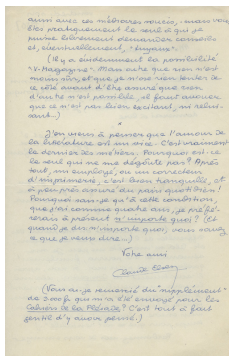 aussi avec ces médiocres soucis, mais vous
êtes pratiquement le seul à qui je
puisse librement demander conseils
et, éventuellement,
(Il y a évidemment la possibilité
Mais outre que rien n'est
moins sûr, et que je n'ose rien tenter de
ce côté avant d'être assuré que rien
d'autre n'est possible, il faut avouer
que ce n'est pas bien excitant, ni reluisant...)
*
J'en viens à penser que l'amour de
la littérature est un vice. C'est vraiment
le dernier des métiers. Pourquoi est-ce
le seul qui ne me dégoûte pas? Après
tout, un employé, ou un correcteur
d'imprimerie, c'est bien tranquille, et
à peu près assuré d'un pain quotidien!
Pourquoi faut-il qu'à cette condition,
que j'ai connue quatre ans, je préfère
à présent n'importe quoi? (Et
quand je dis n'importe quoi, vous savez
ce que je veux dire...)
Votre ami
(Vous ai-je remercié du "supplément"
de qui m'a été envoyé pour les
Cahiers de la Pléiade? C'est tout à fait
gentil d'y avoir pensé.)